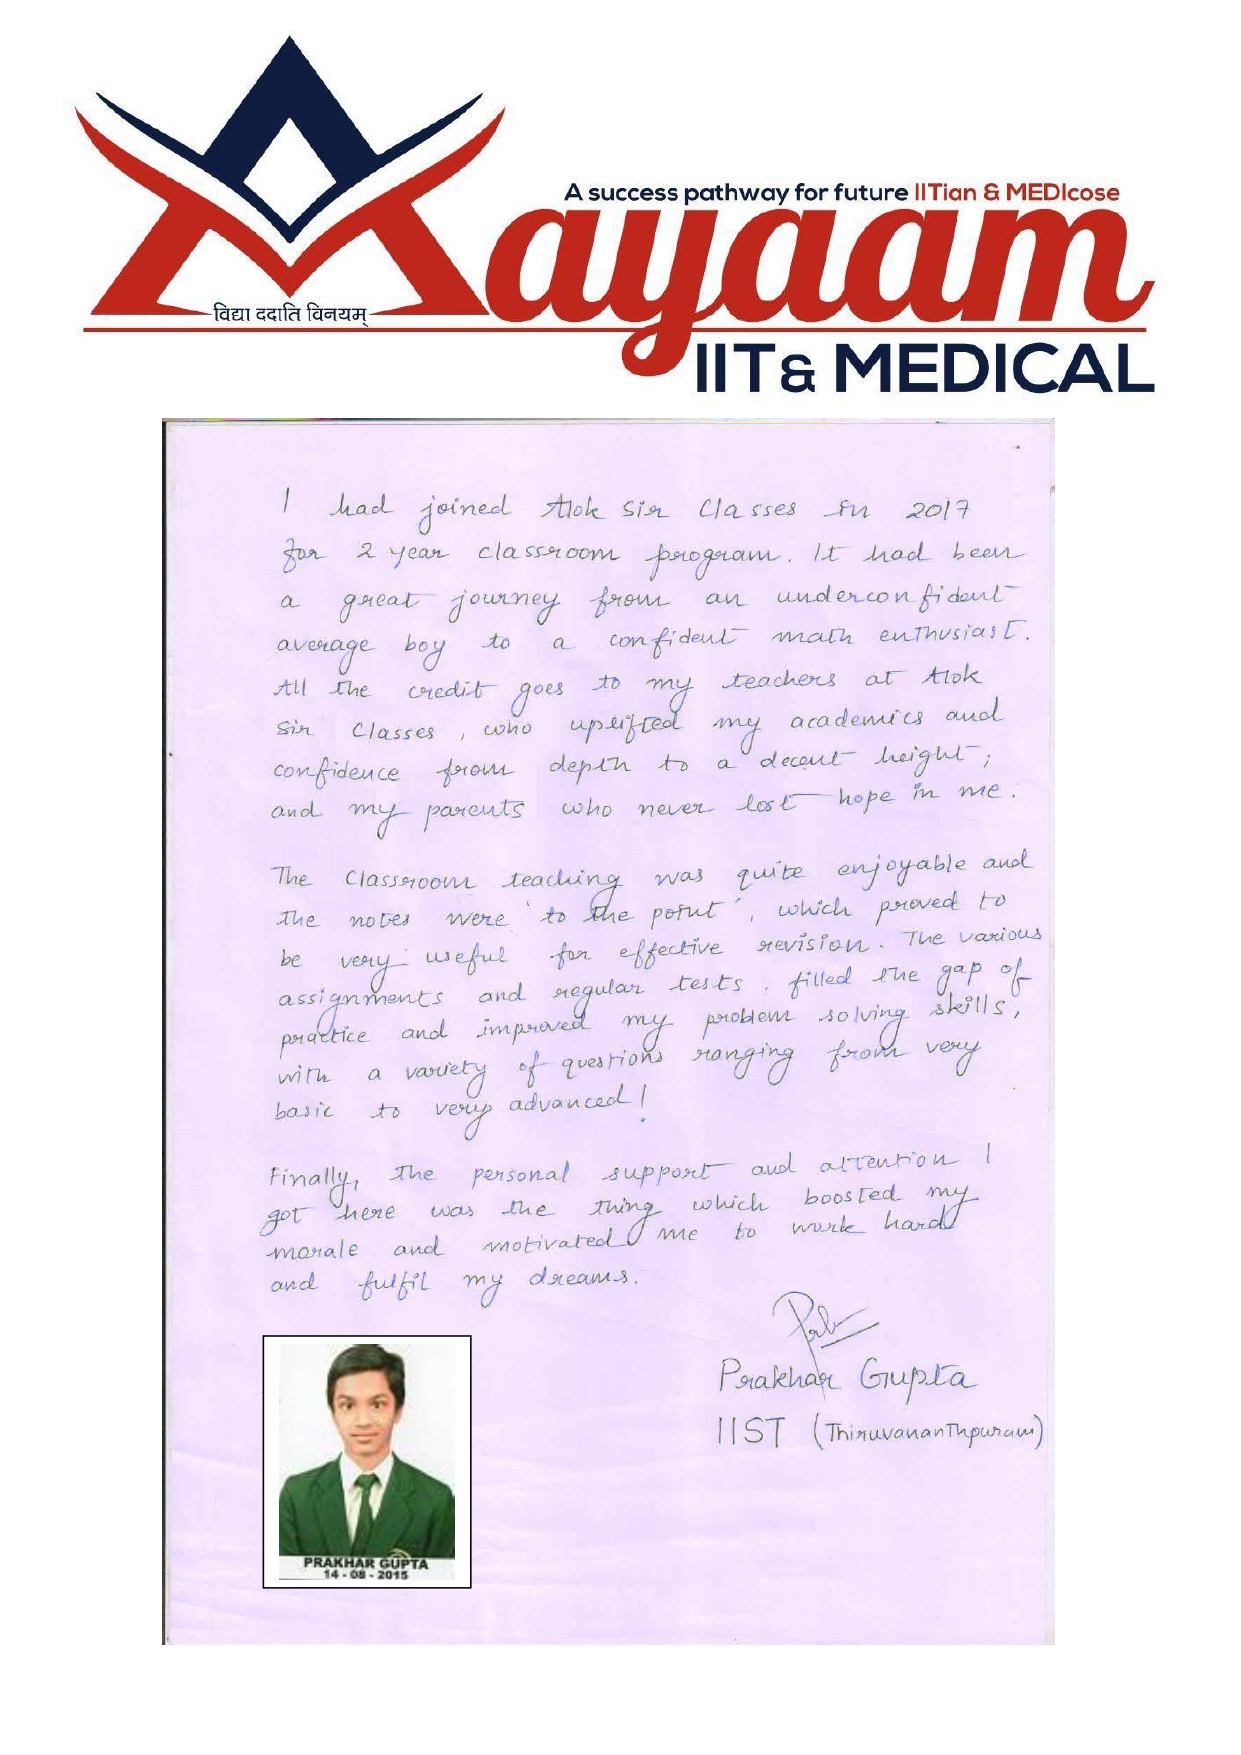 A success pathway for future IITian & MEDIcose
Mayaam
विद्या ददाति विनयम्
IIT & MEDICAL
I had joined Alok Sir Classes in 2017
for 2 year classroom program. It had been
a great journey from an underconfident
average boy to a confident math enthusiast.
All the credit goes to my teachers at Alok
Sir Classes, who uplifted my academics and
confidence from depth to a decent height;
and my parents who never lost hope in me.
The classroom teaching was quite enjoyable and
the notes were 'to the point', which proved to
be very useful for effective revision. The various
assignments and regular tests, filled the gap of
practice and improved my problem solving skills,
with a variety of questions ranging from very
basic to very advanced!
Finally, the personal support and attention I
got here was the thing which boosted my
morale and motivated me to work hard
and fulfil my dreams.
Prakhar Gupta
IIST (Thiruvananthpuram)
PRAKHAR GUPTA
14 - 08 - 2015